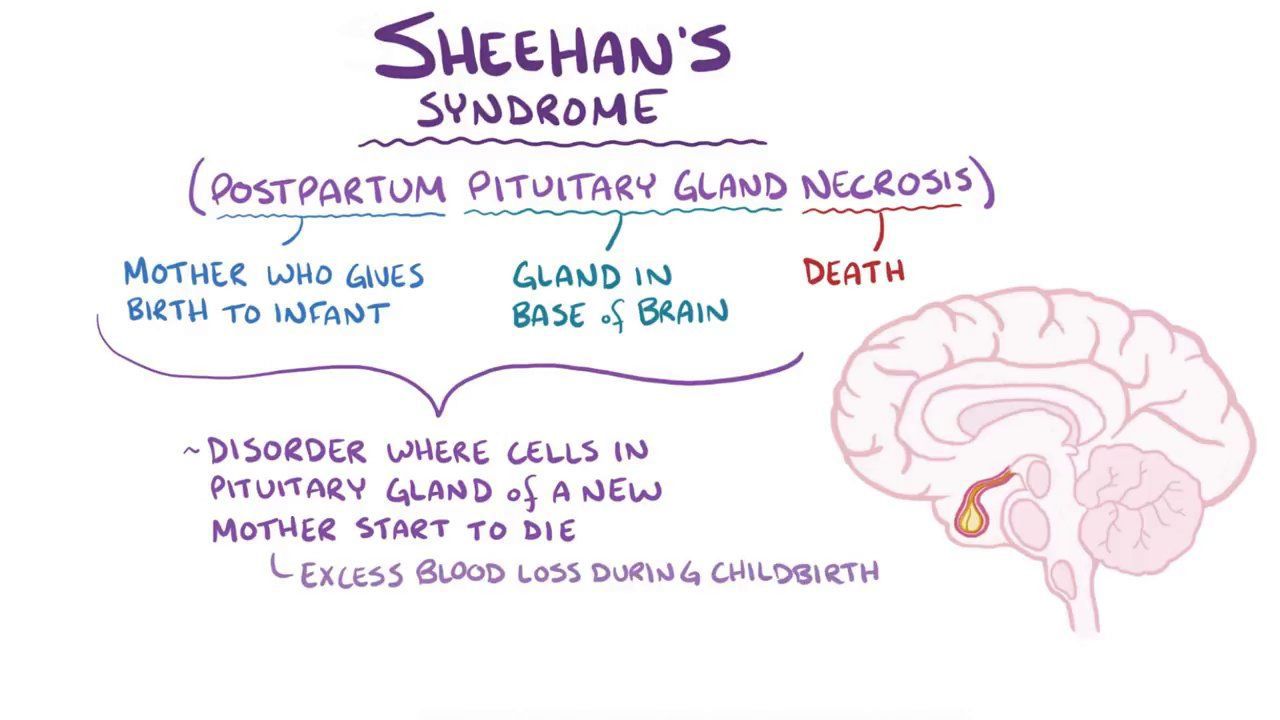 SHEEHAN'S
SYNDROME
(POSTPARTUM PITUITARY GLAND NECROSIS)
MOTHER WHO GIVES
BIRTH TO INFANT
GLAND IN
BASE of BRAIN
DEATH
~DISORDER WHERE CELLS IN
PITUITARY GLAND of A NEW
MOTHER START TO DIE
EXCESS BLOOD LOSS DURING CHILDBIRTH